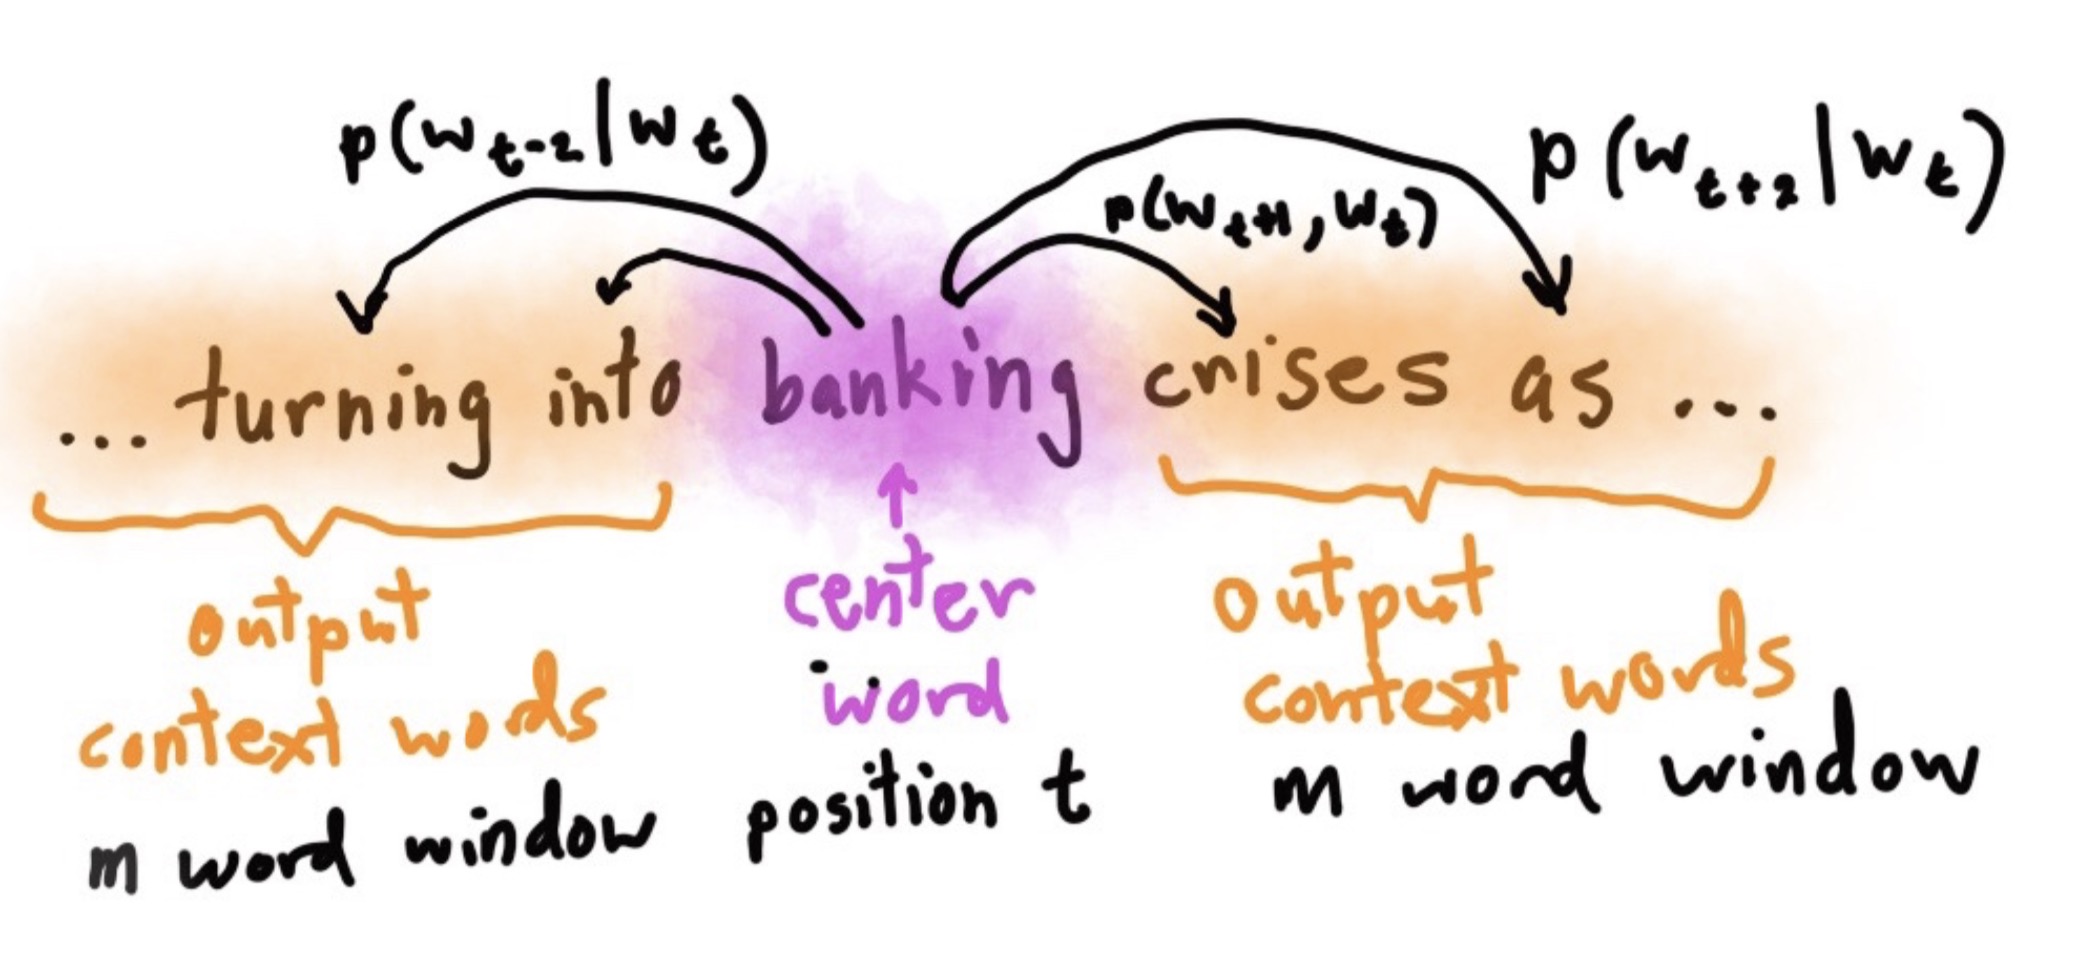 p(w t-2 | w t)
p(w t+1, w t)
p(w t+2 | w t)
... turning into banking crises as ...
output
context wods
m word window
center
word
position t
output
context words
m word window